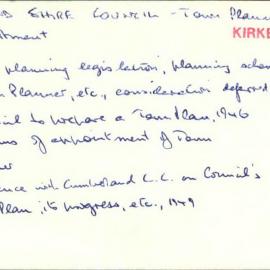 SHIRE COUNCIL - Town Planne
KIRKE
planning legislation, planning scheme
Planner, etc., consideration deferred
to prepare a Town Plan, 1946
of appointment of Town
with Cumberland C.C. on Council's
Plan, its progress, etc., 1949